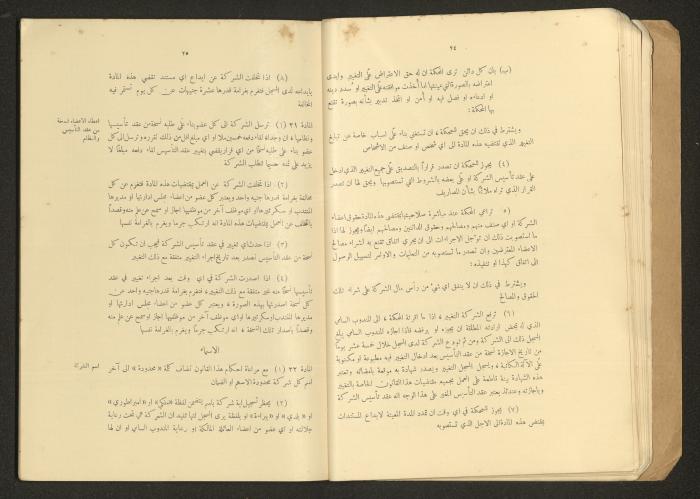 ٢٤
(ب) بأن كل دائن ترى المحكمة ان له حق الاعتراض على التغيير وابدى
اعتراضه بالصورة التي عينتها لذا أخذت موافقته على التغيير او سُدد دينه
او ادعاءه او فصل فيه او أُمن او اتخذ تدبير بشأنه بصورة تقنع
بها المحكمة:
ويشترط في ذلك ان يحق للمحكمة، ان تستغني بناء على اسباب خاصة عن تبليغ
التغيير الذي تقتضيه هذه المادة الى اي شخص او صنف من الاشخاص
(٤) يجوز للمحكمة ان تصدر قراراً بالتصديق على جميع التغيير الذي ادخل
على عقد تأسيس الشركة او على بعضه بالشروط التي تستصوبها ويحق لها ان تصدر
القرار الذي تراه ملائماً بشأن المصاريف
(٥) تراعي المحكمة عند مباشرة صلاحيتها بمقتضى هذه المادة حقوق اعضاء
الشركة او اي صنف منهم ومصالحهم وحقوق الدائنين ومصالحهم ايضاً ويجوز لها اذا
ما استصوبت ذلك ان تؤجل الاجراءات الى ان يجري اتفاق تقتنع به لشراء مصالح
الاعضاء المعترضين وان تصدر ما تستصوبه من التعليمات والاوامر لتسهيل الوصول
الى اتفاق كهذا او تنفيذه:
ويشترط في ذلك ان لا ينفق اي شيء من رأس مال الشركة على شراء تلك
الحقوق والمصالح
(٦) ترفع الشركة التغيير، اذا ما اقرته المحكمة، الى المندوب السامي
الذي له بمحض ارادته المطلقة ان يجيزه او يرفضه فاذا اجازه المندوب السامي يبلغ
المسجل ذلك الى الشركة ومن ثم تودع الشركة لدى المسجل خلال خمسة عشر يوماً
من تاريخ الاجازة نسخة من عقد التأسيس بعد ادخال التغيير فيه مطبوعة او مكتوبة
على الآلة الكاتبة، ويسجل المسجل التغيير ويصدر شهادة به موقعة بامضائه وتعتبر
هذه الشهادة بينة قاطعة على العمل بجميع مقتضيات هذا القانون الخاصة بالتغيير
وباجازته وعندئذ يعتبر عقد التأسيس المغير على هذا الوجه انه عقد تأسيس الشركة
(٧) يجوز للمحكمة في اي وقت ان تمدد المدة المعينة لايداع المستندات
بمقتضى هذه المادة الى الاجل الذي تستصوبه
٢٥
(٨) اذا تخلفت الشركة عن ايداع اي مستند تقضي هذه المادة
بايداعه لدى المسجل فتغرم بغرامة قدرها عشرة جنيهات عن كل يوم تستمر فيه
المخالفة
المادة ٣١ (١) ترسل الشركة الى كل عضو بناء على طلبه نسخة من عقد تأسيسها
ونظامها، ان وجد لقاء دفعه خمسين ملاً او اي مبلغ اقل من ذلك تقرره وترسل الى كل
عضو بناء على طلبه نسخاً من اي قرار يقضي بتغيير عقد التأسيس لقاء دفعه مبلغاً لا
يزيد على ثمنه حسبما تطلب الشركة
اعطاء الاعضاء نسخة
من عقد التأسيس
والنظام
(٢) اذا تخلفت الشركة عن العمل بمقتضيات هذه المادة فتغرم عن كل
مخالفة بغرامة قدرها جنيه واحد ويعتبر كل عضو من اعضاء مجلس ادارتها او مديرها
المنتدب او سكرتيرها او اي موظف آخر من موظفيها اجاز او سمح عن علم منه وقصد
بالتخلف عن العمل بمقتضيات هذه المادة انه ارتكب جرماً ويغرم بالغرامة نفسها
(٣) اذا حدث اي تغيير في عقد تأسيس الشركة فيجب ان تكون كل
نسخة من عقد التأسيس تصدر بعد تاريخ اجراء التغيير متفقة مع ذلك التغيير
(٤) اذا اصدرت الشركة في اي وقت بعد اجراء تغيير في عقد
تأسيسها نسخاً منه غير متفقة مع ذلك التغيير، فتغرم بغرامة قدرها جنيه واحد عن
كل نسخة اصدرتها بهذه الصورة، ويعتبر كل عضو من اعضاء مجلس ادارتها او
مديرها المنتدب او سكرتيرها او اي موظف آخر من موظفيها اجاز او سمح عن علم منه
وقصد باصدار تلك النسخة، انه ارتكب جرماً ويغرم بالغرامة نفسها
الاسماء
المادة ٣٢ (١) مع مراعاة احكام هذا القانون تضاف كلة « محدودة » الى آخر
اسم كل شركة محدودة الاسهم او الضمان
اسم الشركة
(٢) يحظر تسجيل اية شركة باسم يتضمن لفظة «ملكي» او «امبراطوري»
او « بلدي » او «براءة» او بلفظة يرى المسجل انها تفيد ان الشركة هي تحت رعاية
جلالته او اي عضو من اعضاء العائلة المالكة او رعاية المندوب السامي او ان لها